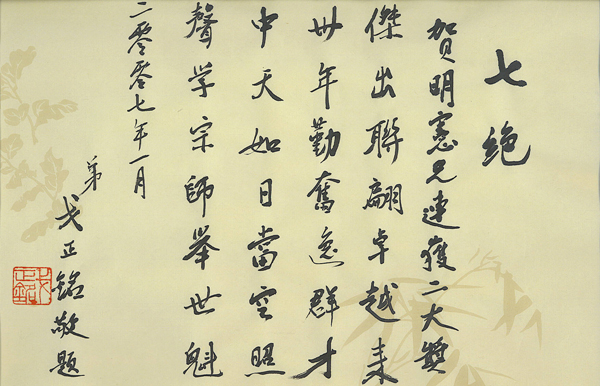 七絶
賀明憲兄連獲二大獎
傑出聯翩卓越来
卅年勤奮逸群才
中天如日當空照
聲学宗師举世魁
二零零七年一月
弟
戈正銘敬題